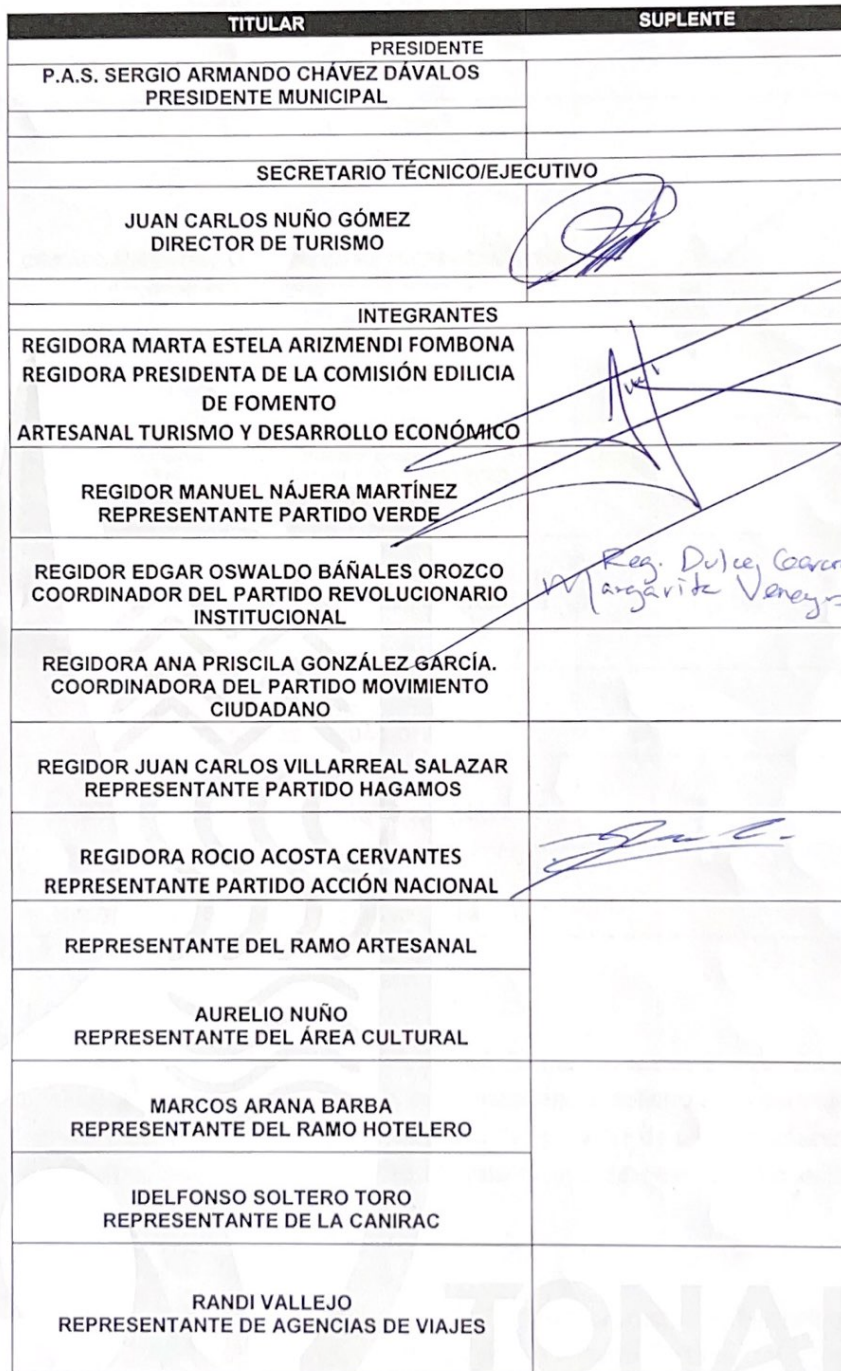 TITULAR SUPLENTE
PRESIDENTE
P.A.S. SERGIO ARMANDO CHÁVEZ DÁVALOS
PRESIDENTE MUNICIPAL
SECRETARIO TÉCNICO/EJECUTIVO
JUAN CARLOS NUÑO GÓMEZ
DIRECTOR DE TURISMO
INTEGRANTES
REGIDORA MARTA ESTELA ARIZMENDI FOMBONA
REGIDORA PRESIDENTA DE LA COMISIÓN EDILICIA
DE FOMENTO
ARTESANAL TURISMO Y DESARROLLO ECONÓMICO
REGIDOR MANUEL NÁJERA MARTÍNEZ
REPRESENTANTE PARTIDO VERDE
REGIDOR EDGAR OSWALDO BÁÑALES OROZCO
COORDINADOR DEL PARTIDO REVOLUCIONARIO
INSTITUCIONAL
Reg. Dulce
Margarita
REGIDORA ANA PRISCILA GONZÁLEZ GARCÍA.
COORDINADORA DEL PARTIDO MOVIMIENTO
CIUDADANO
REGIDOR JUAN CARLOS VILLARREAL SALAZAR
REPRESENTANTE PARTIDO HAGAMOS
REGIDORA ROCIO ACOSTA CERVANTES
REPRESENTANTE PARTIDO ACCIÓN NACIONAL
REPRESENTANTE DEL RAMO ARTESANAL
AURELIO NUÑO
REPRESENTANTE DEL ÁREA CULTURAL
MARCOS ARANA BARBA
REPRESENTANTE DEL RAMO HOTELERO
IDELFONSO SOLTERO TORO
REPRESENTANTE DE LA CANIRAC
RANDI VALLEJO
REPRESENTANTE DE AGENCIAS DE VIAJES
TONAL